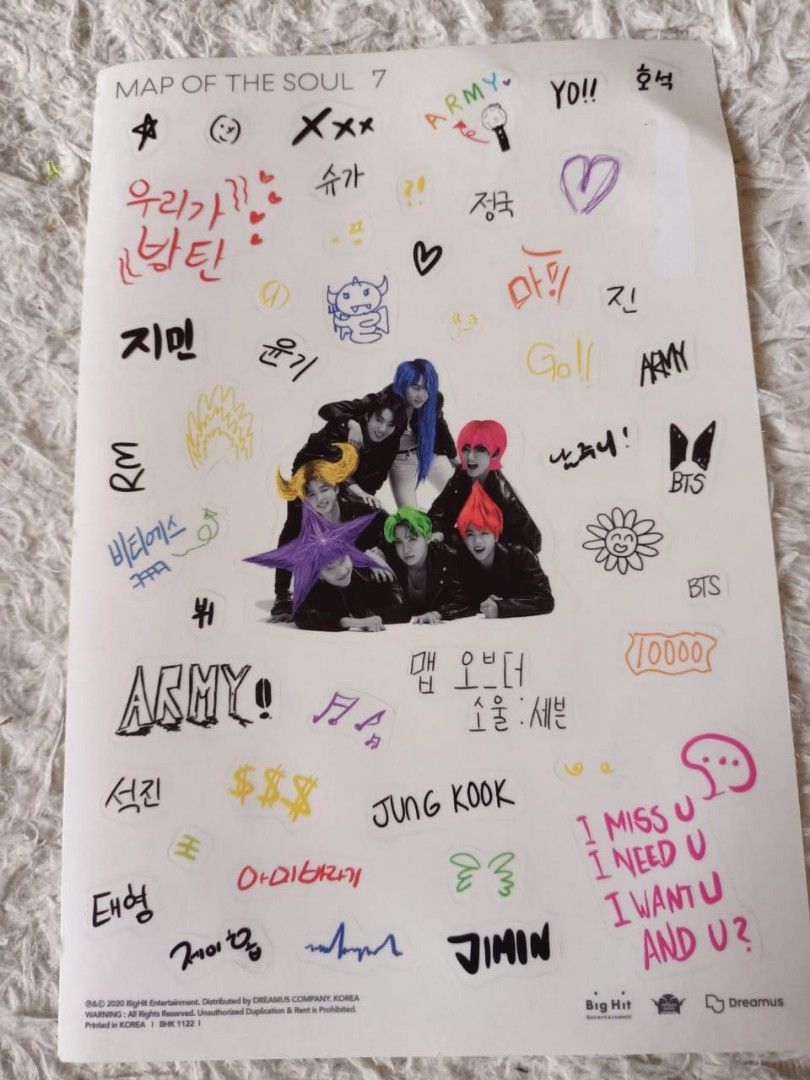 MAP OF THE SOUL 7
xxx
ARMY
YO!!
호석
우리가
방탄
슈가
?!
정국
마!!
진
지민
윤기
Go!!
ARMY
RM
BTS
비티에스
BTS
뷔
10000
맵 오브더
소울:세븐
ARMY!
석진
$$$
JUNG KOOK
I MISS U
I NEED U
I WANT U
AND U?
아미바라기
태형
제이홉
JIMIN
℗&© 2020 BigHit Entertainment. Distributed by DREAMUS COMPANY. KOREA
WARNING : All Rights Reserved. Unauthorized Duplication & Rent is Prohibited.
Printed in KOREA I BHK 1122 I
Big Hit
Entertainment
Dreamus